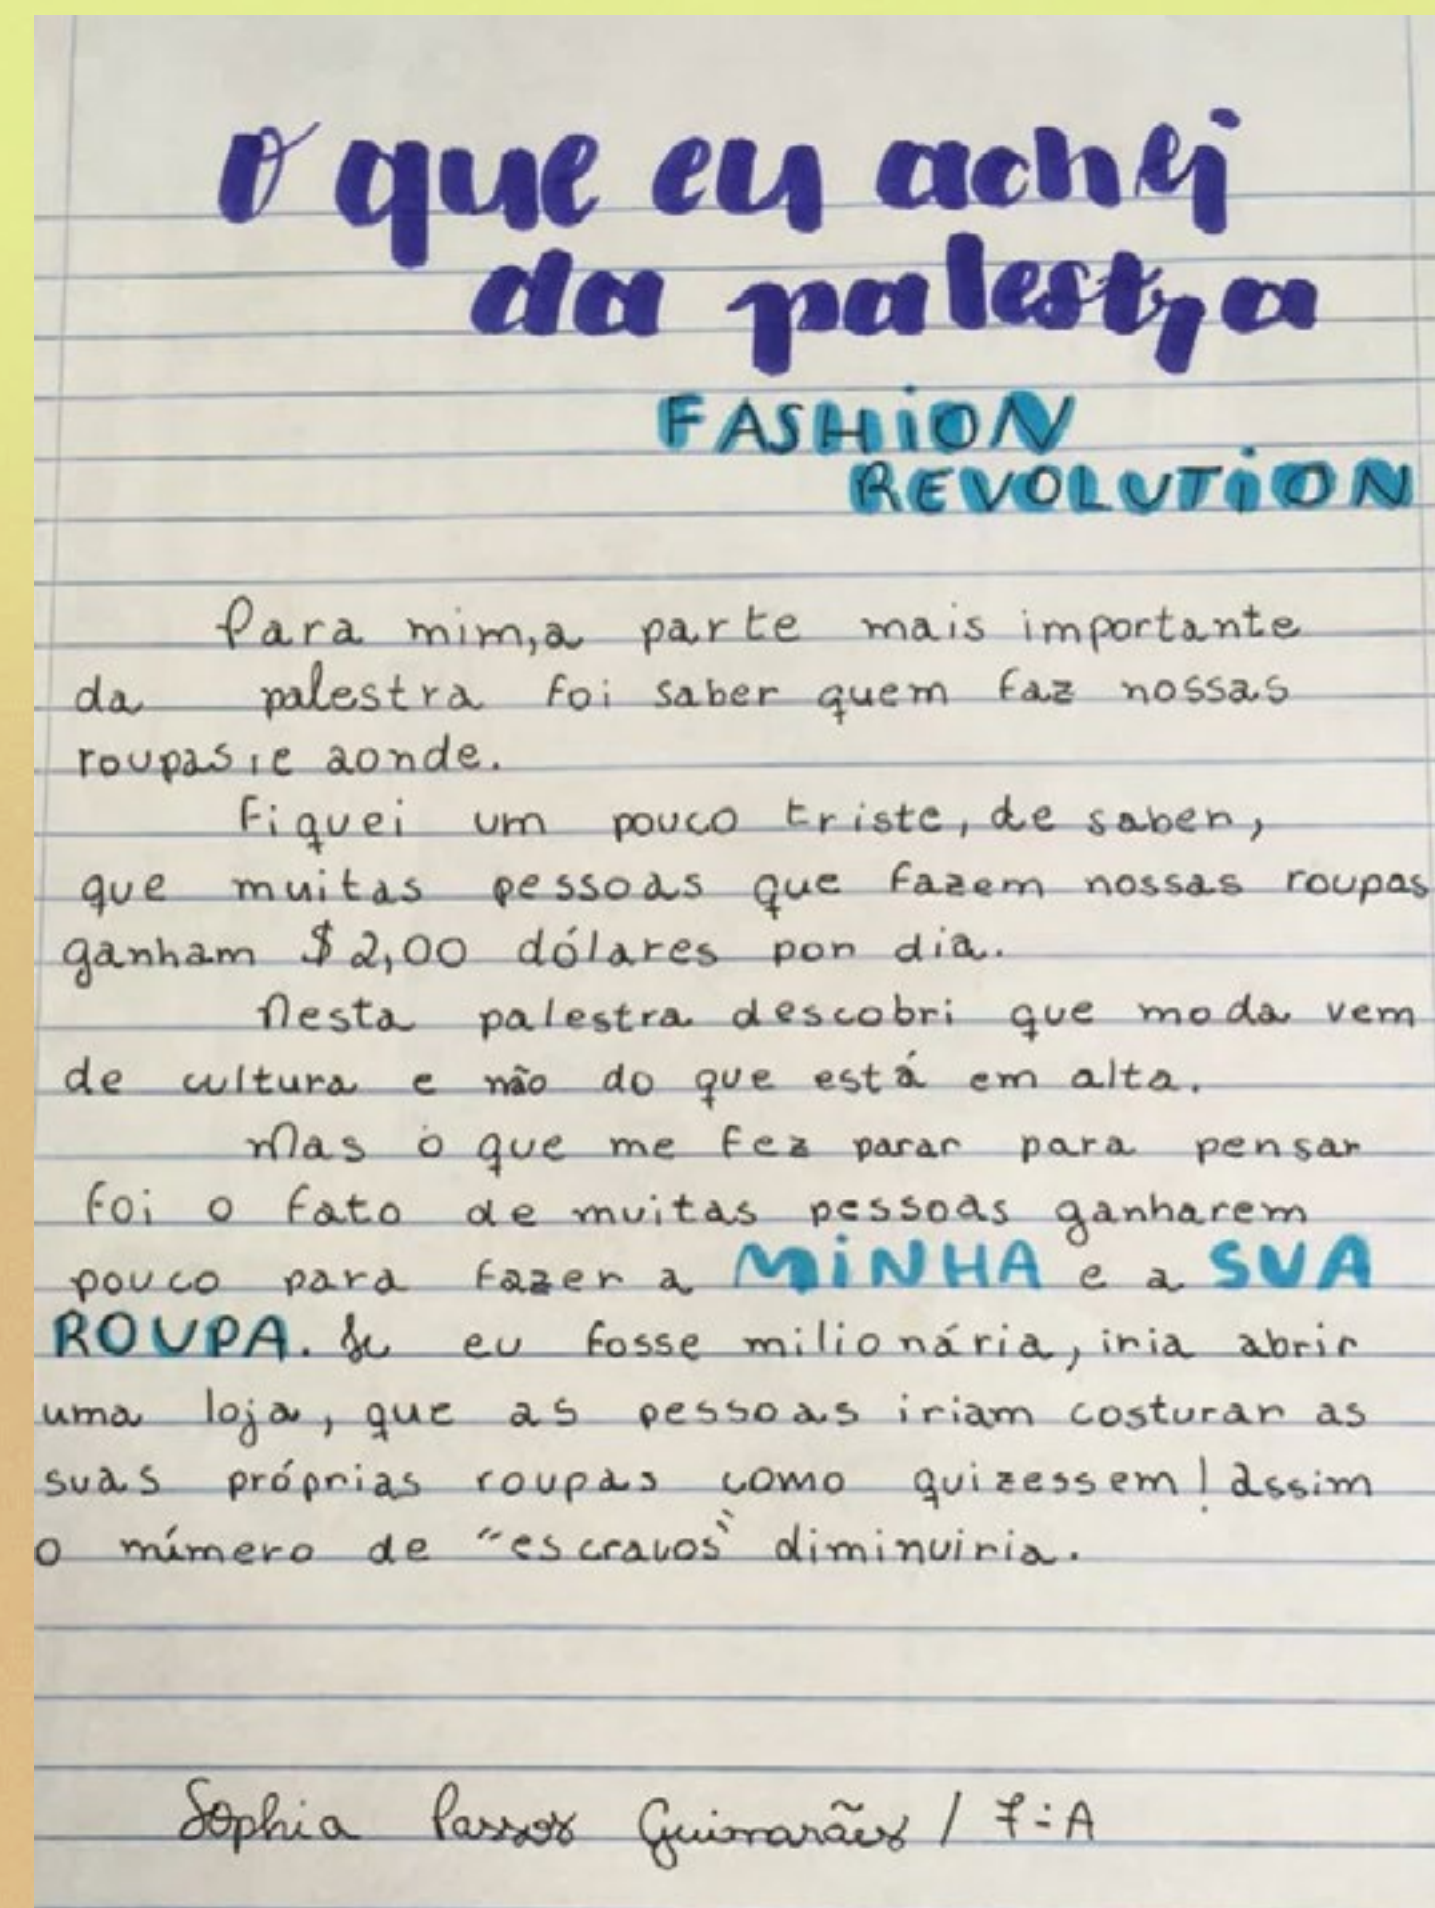 O que eu achei
da palestra
FASHiON
REVOLUTiON
Para mim, a parte mais importante
da palestra foi saber quem faz nossas
roupas, e aonde.
Fiquei um pouco triste, de saber,
que muitas pessoas que fazem nossas roupas
ganham $2,00 dólares por dia.
Nesta palestra descobri que moda vem
de cultura e não do que está em alta.
Mas o que me fez parar para pensar
foi o fato de muitas pessoas ganharem
pouco para fazer a MiNHA e a SUA
ROUPA. Se eu fosse milionária, iria abrir
uma loja, que as pessoas iriam costurar as
suas próprias roupas como quizessem! assim
o número de "escravos" diminuiria.
Sophia Passos Guimarães / 7º A